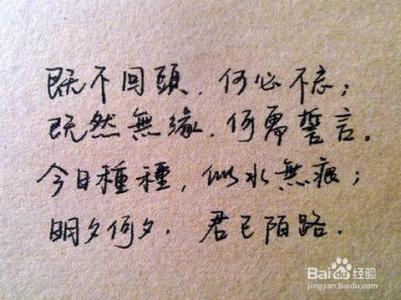 既不回頭．何必不忘；
既然無緣．何需誓言。
今日種種，似水無痕；
明夕何夕．君已陌路．
Baidu 经验
jingyan.baidu.com